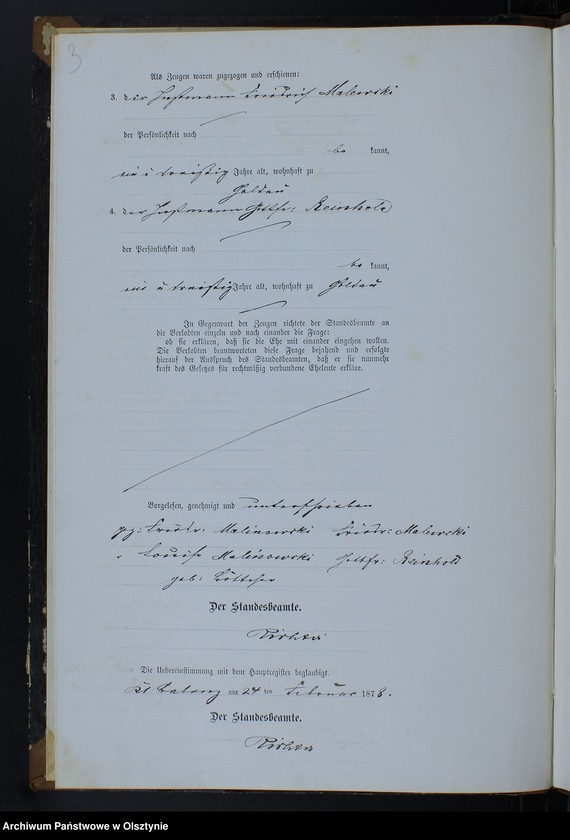 3
Als Zeugen waren zugezogen und erschienen:
3. der Instmann Friedrich Malewski
der Persönlichkeit nach
be kannt,
ein u dreißig Jahre alt, wohnhaft zu
Goldau
4. der Instmann Gottfr: Reinhold
der Persönlichkeit nach
be kannt,
ein u dreißig Jahre alt, wohnhaft zu Goldau
In Gegenwart der Zeugen richtete der Standesbeamte an
die Verlobten einzeln und nach einander die Frage:
ob sie erklären, daß sie die Ehe mit einander eingehen wollen.
Die Verlobten beantworteten diese Frage bejahend und erfolgte
hierauf der Ausspruch des Standesbeamten, daß er sie nunmehr
kraft des Gesetzes für rechtmäßig verbundene Eheleute erkläre.
Vorgelesen, genehmigt und unterschrieben
gez: Friedr: Malinowski Friedr: Malewski
" Louise Malinowski Gottfr: Reinhold
geb: Böttcher
Der Standesbeamte.
Richter
Die Uebereinstimmung mit dem Hauptregister beglaubigt.
am 24 ten Februar 1878.
Der Standesbeamte.
Richter
Archiwum Państwowe w Olsztynie